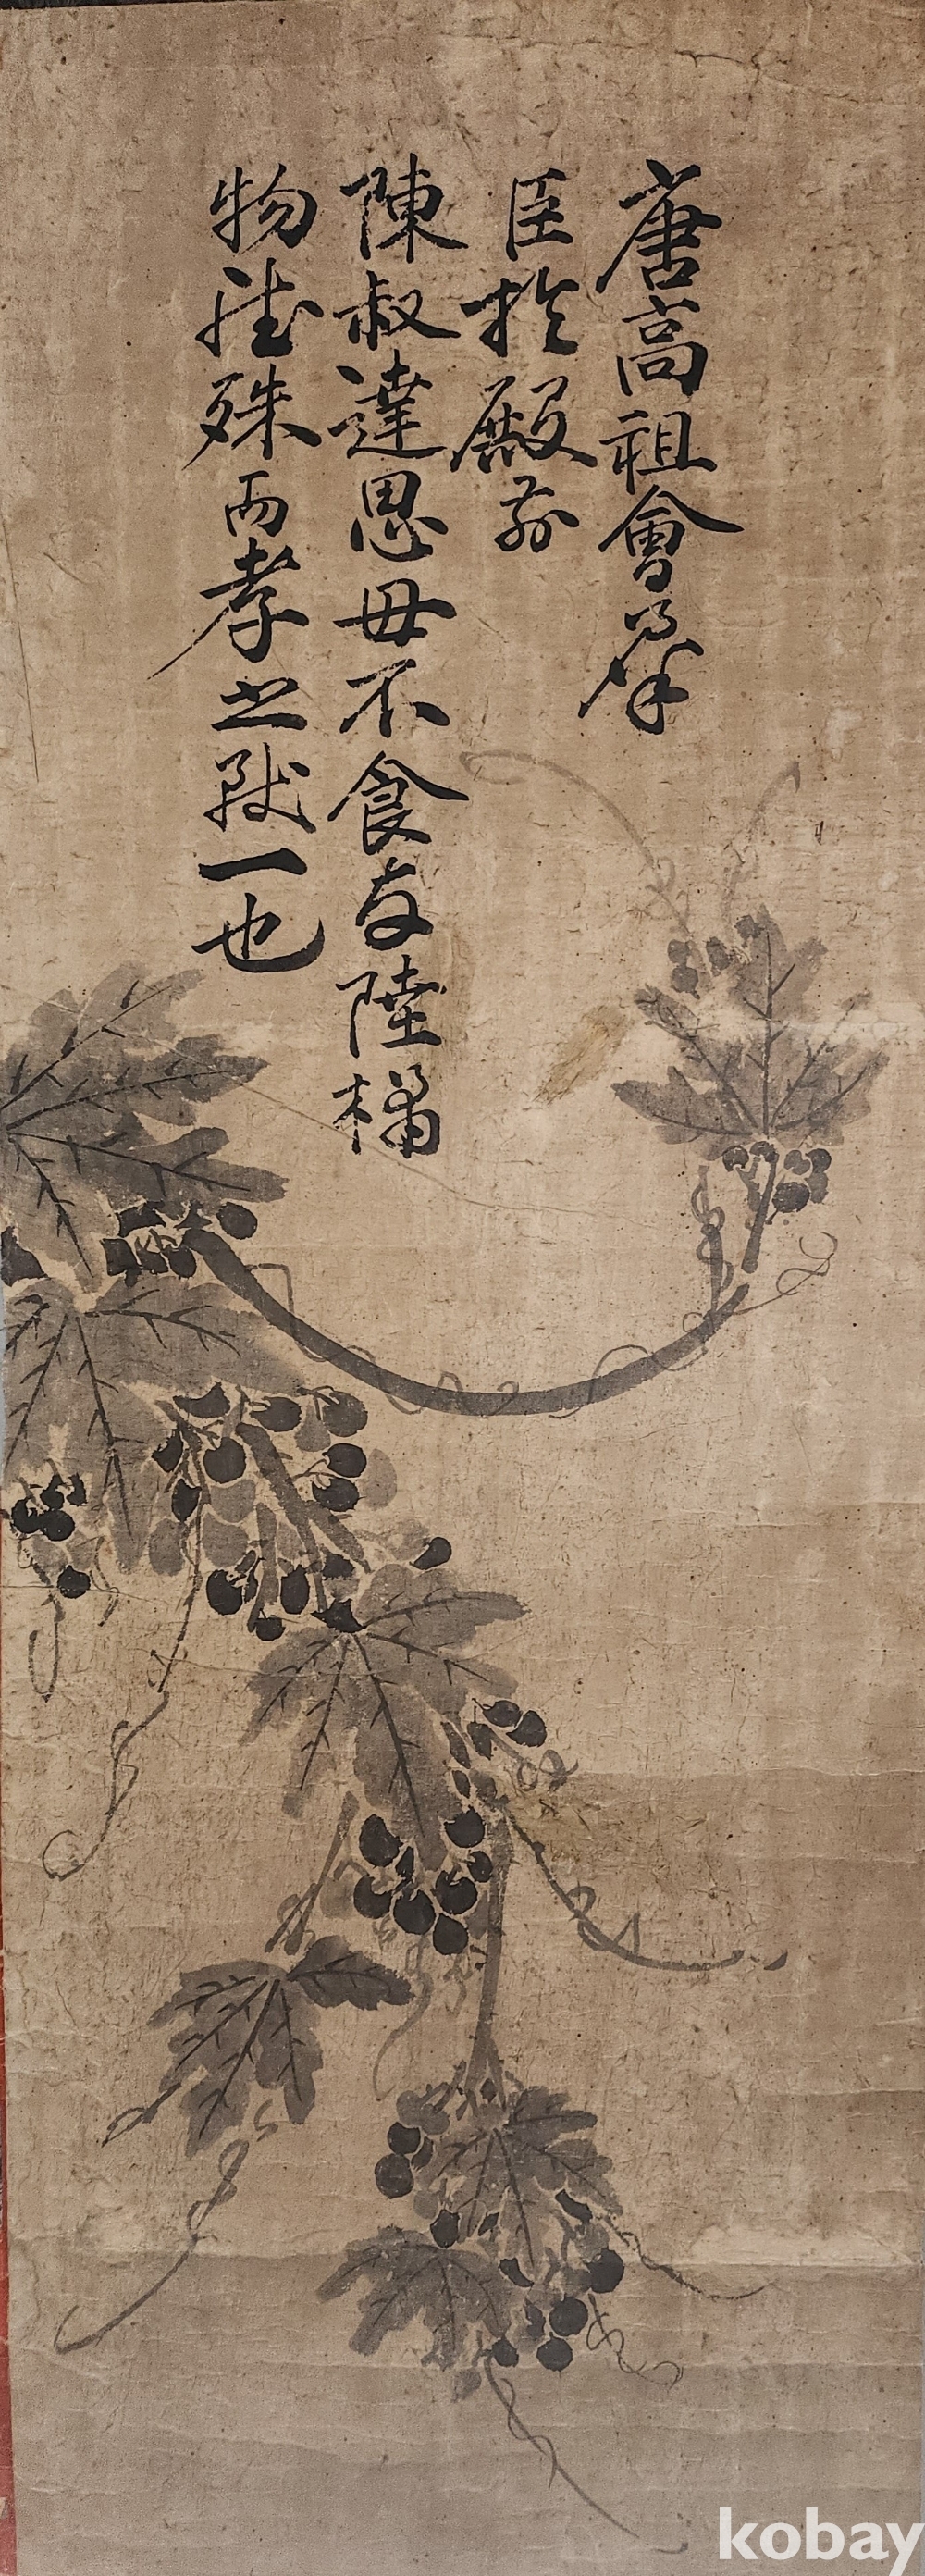 唐高祖會羣
臣扵殿前
陳叔達思母不食与陸橘
物雖殊而孝之致一也
kobay